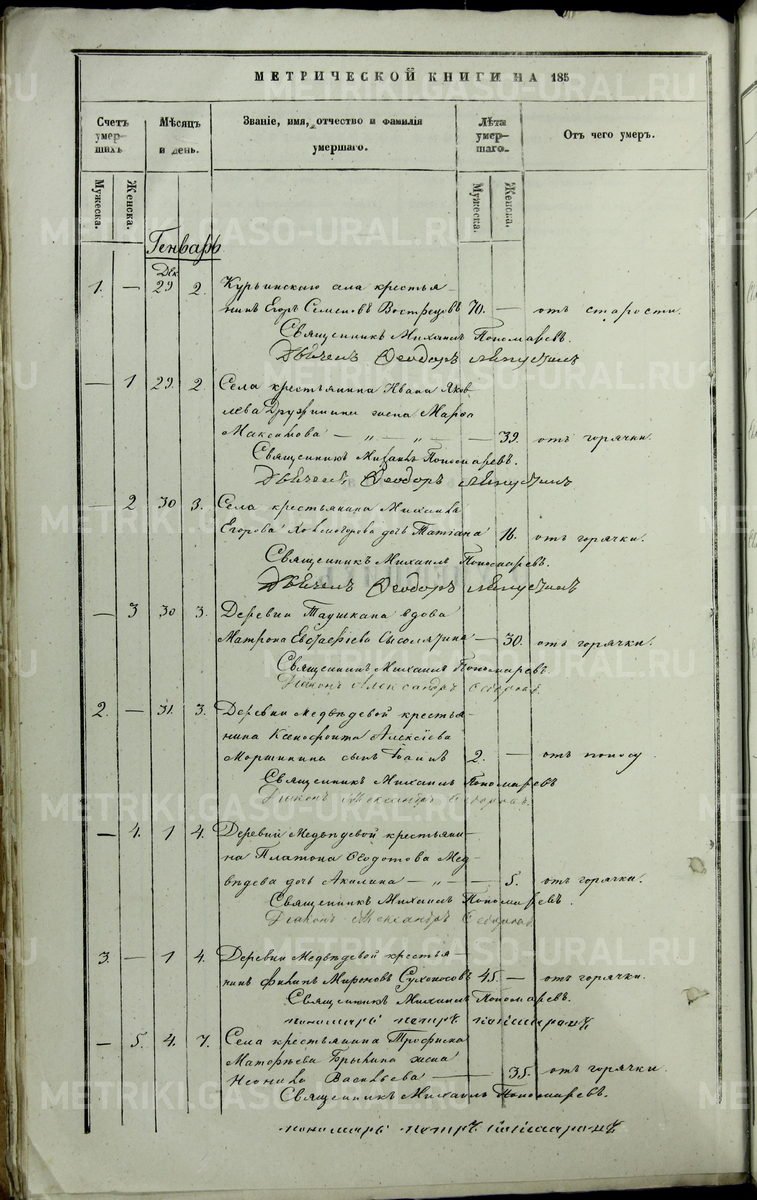 МЕТРИЧЕСКОЙ КНИГИ НА 185
Счетъ умершихъ
Мѣсяцъ и день.
Званіе, имя, отчество и фамилія умершаго.
Лѣта умершаго.
Отъ чего умеръ.
Мужеска.
Женска.
Мужеска.
Женска.
Генварь
Дек.
1. — 29 2. Курьинскаго села крестья-
нинъ Егоръ Семеновъ Вострецовъ 70. — отъ старости.
Священникъ Михаилъ Пономаревъ.
Ѳеодоръ
— 1 29. 2. Села крестьянина Ивана Яков-
лева Дружинина жена Марѳа
Максимова — „ — „ — 39. отъ горячки.
Священникъ Михаилъ Пономаревъ.
Ѳеодоръ
— 2 30 3. Села крестьянина Михаила
Егорова дочь Татіана 16. отъ горячки.
Священникъ Михаилъ Пономаревъ.
Ѳеодоръ
— 3 30 3. Деревни Таушкана вдова
Матрона Евстафіева Сысолятина — 30. отъ горячки.
Священникъ Михаилъ Пономаревъ.
Діаконъ Александръ
2. — 31. 3. Деревни Медвѣдевой крестья-
нина Ксенофонта Алексіева
Моршинина сынъ Іоаннъ 2. — отъ поносу
Священникъ Михаилъ Пономаревъ
Діаконъ Александръ
— 4. 1 4. Деревни Медвѣдевой крестьяни-
на Платона Ѳедотова Мед-
вѣдева дочь Акилина — „ — 5. отъ горячки.
Священникъ Михаилъ Пономаревъ.
Діаконъ Александръ
3. — 1 4. Деревни Медвѣдевой крестья-
нинъ Филипъ Мироновъ Сухоносовъ 45. — отъ горячки.
Священникъ Михаилъ Пономаревъ.
пономарь петръ
— 5. 4. 7. Села крестьянина Трофима
Матѳѣева Брылина жена
Неонила Васильева — 35. отъ горячки.
Священникъ Михаилъ Пономаревъ.
пономарь петръ
METRIKI.GASO-URAL.RU